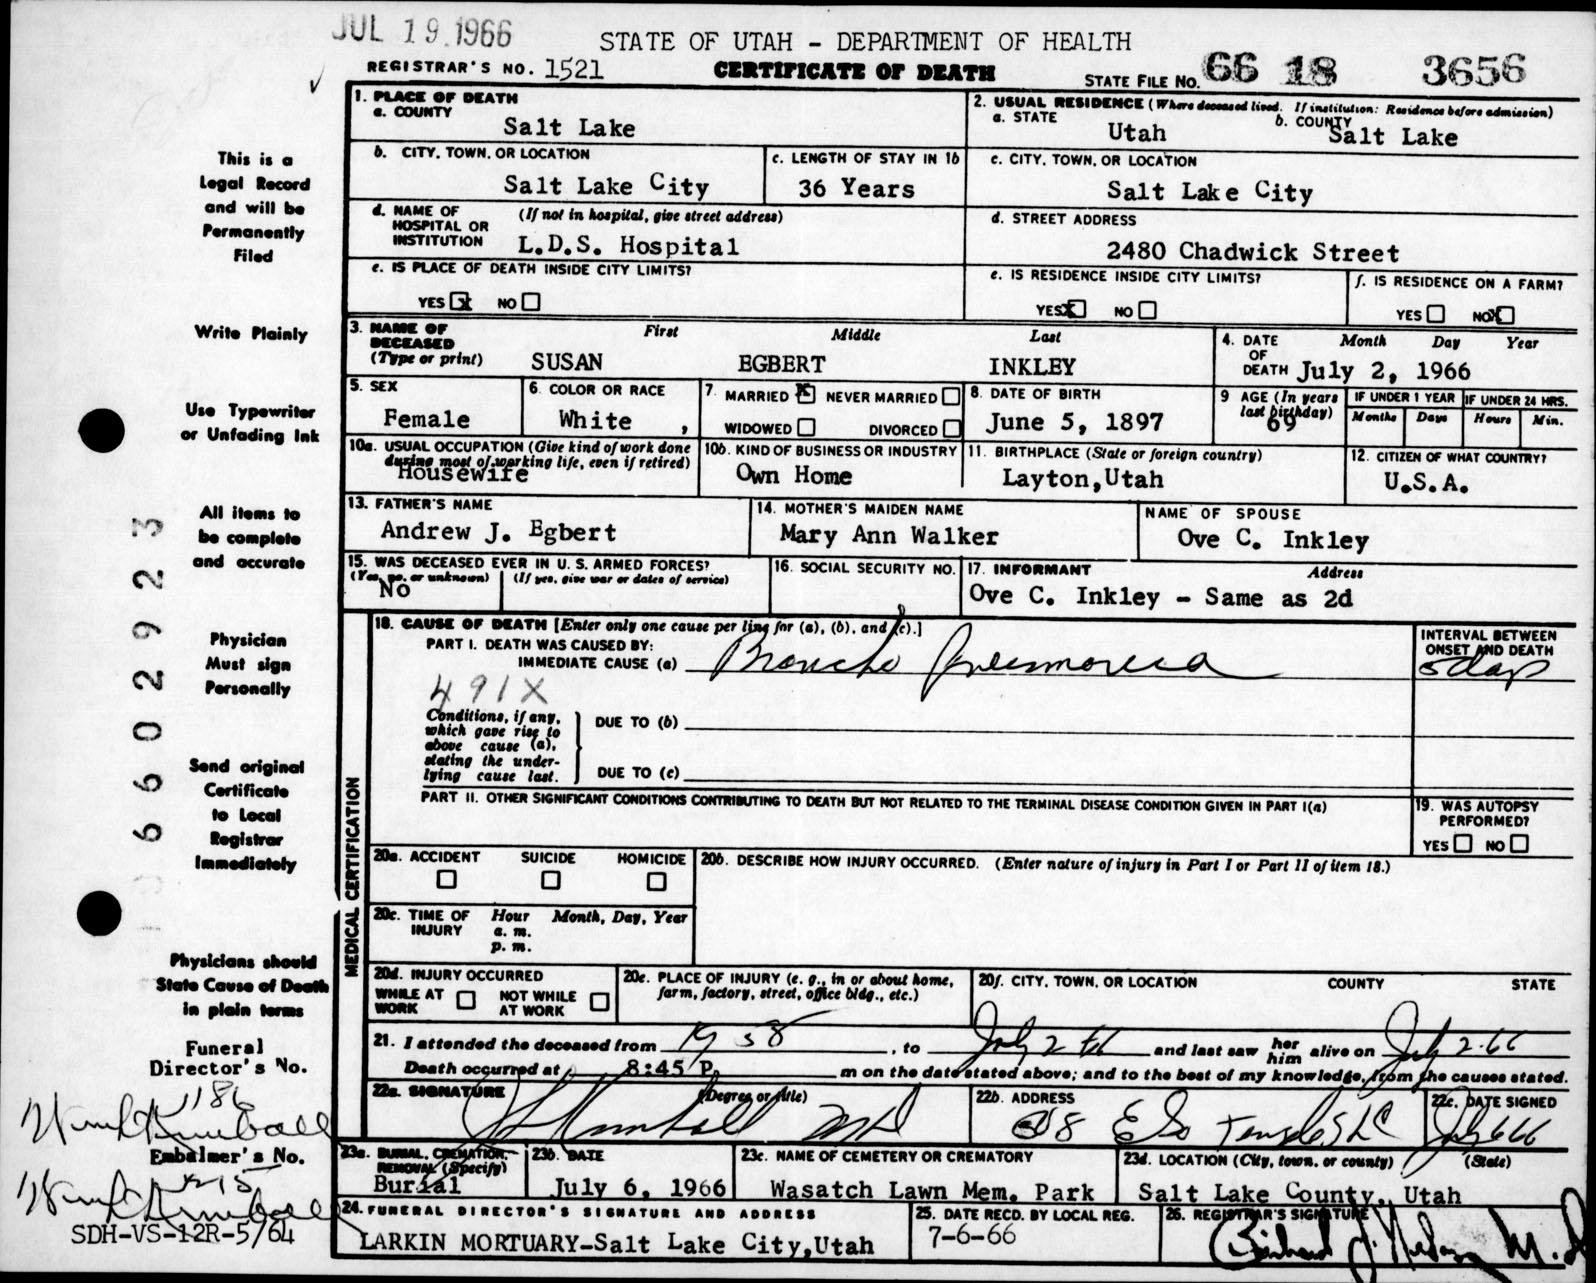 JUL 19 1966
STATE OF UTAH - DEPARTMENT OF HEALTH
REGISTRAR'S NO. 1521
CERTIFICATE OF DEATH
STATE FILE NO. 66 18 3656
1. PLACE OF DEATH
a. COUNTY
Salt Lake
2. USUAL RESIDENCE (Where deceased lived. If institution: Residence before admission)
a. STATE
Utah
b. COUNTY
Salt Lake
b. CITY, TOWN, OR LOCATION
Salt Lake City
c. LENGTH OF STAY IN 1b
36 Years
c. CITY, TOWN, OR LOCATION
Salt Lake City
d. NAME OF HOSPITAL OR INSTITUTION
(If not in hospital, give street address)
L.D.S. Hospital
d. STREET ADDRESS
2480 Chadwick Street
e. IS PLACE OF DEATH INSIDE CITY LIMITS?
YES X NO
e. IS RESIDENCE INSIDE CITY LIMITS?
YES X NO
f. IS RESIDENCE ON A FARM?
YES NO X
3. NAME OF DECEASED (Type or print)
First Middle Last
SUSAN EGBERT INKLEY
4. DATE OF DEATH
Month Day Year
July 2, 1966
5. SEX
Female
6. COLOR OR RACE
White ,
7. MARRIED X NEVER MARRIED
WIDOWED DIVORCED
8. DATE OF BIRTH
June 5, 1897
9 AGE (In years last birthday)
69
IF UNDER 1 YEAR
Months Days
IF UNDER 24 HRS.
Hours Min.
10a. USUAL OCCUPATION (Give kind of work done during most of working life, even if retired)
Housewife
10b. KIND OF BUSINESS OR INDUSTRY
Own Home
11. BIRTHPLACE (State or foreign country)
Layton, Utah
12. CITIZEN OF WHAT COUNTRY?
U.S.A.
13. FATHER'S NAME
Andrew J. Egbert
14. MOTHER'S MAIDEN NAME
Mary Ann Walker
NAME OF SPOUSE
Ove C. Inkley
15. WAS DECEASED EVER IN U. S. ARMED FORCES?
(Yes, no, or unknown) (If yes, give war or dates of service)
No
16. SOCIAL SECURITY NO.
17. INFORMANT Address
Ove C. Inkley - Same as 2d
MEDICAL CERTIFICATION
18. CAUSE OF DEATH [Enter only one cause per line for (a), (b), and (c).]
PART I. DEATH WAS CAUSED BY:
IMMEDIATE CAUSE (a) Broncho Pneumonia
INTERVAL BETWEEN ONSET AND DEATH
5 days
491X
Conditions, if any, which gave rise to above cause (a), stating the underlying cause last.
DUE TO (b)
DUE TO (c)
PART II. OTHER SIGNIFICANT CONDITIONS CONTRIBUTING TO DEATH BUT NOT RELATED TO THE TERMINAL DISEASE CONDITION GIVEN IN PART I(a)
19. WAS AUTOPSY PERFORMED?
YES NO
20a. ACCIDENT SUICIDE HOMICIDE
20b. DESCRIBE HOW INJURY OCCURRED. (Enter nature of injury in Part I or Part II of item 18.)
20c. TIME OF INJURY
Hour Month, Day, Year
a. m.
p. m.
20d. INJURY OCCURRED
WHILE AT WORK NOT WHILE AT WORK
20e. PLACE OF INJURY (e. g., in or about home, farm, factory, street, office bldg., etc.)
20f. CITY, TOWN, OR LOCATION COUNTY STATE
21. I attended the deceased from 1958, to July 2 66 and last saw her him alive on July 2-66
Death occurred at 8:45 P. m on the date stated above; and to the best of my knowledge, from the causes stated.
22a. SIGNATURE (Degree or title)
Kimball MD
22b. ADDRESS
E So Temple SLC
22c. DATE SIGNED
July 6 66
23a. BURIAL, CREMATION, REMOVAL (Specify)
Burial
23b. DATE
July 6, 1966
23c. NAME OF CEMETERY OR CREMATORY
Wasatch Lawn Mem. Park
23d. LOCATION (City, town, or county) (State)
Salt Lake County, Utah
24. FUNERAL DIRECTOR'S SIGNATURE AND ADDRESS
LARKIN MORTUARY-Salt Lake City, Utah
25. DATE RECD. BY LOCAL REG.
7-6-66
26. REGISTRAR'S SIGNATURE
M.D
This is a
Legal Record
and will be
Permanently
Filed
Write Plainly
Use Typewriter
or Unfading Ink
All items to
be complete
and accurate
Physician
Must sign
Personally
Send original
Certificate
to Local
Registrar
Immediately
Physicians should
State Cause of Death
in plain terms
Funeral
Director's No.
1186
Embalmer's No.
SDH-VS-12R-5/64
6602923